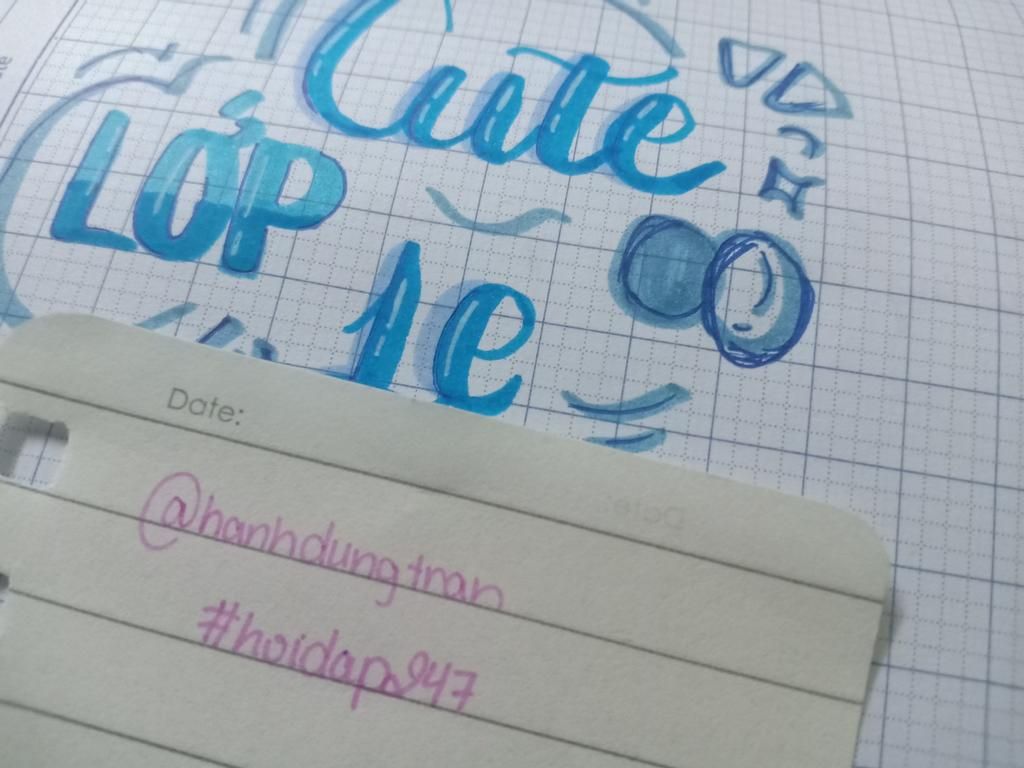 Cute
LỚP
1e
Date:
@hanhdungtran
#hoidap247